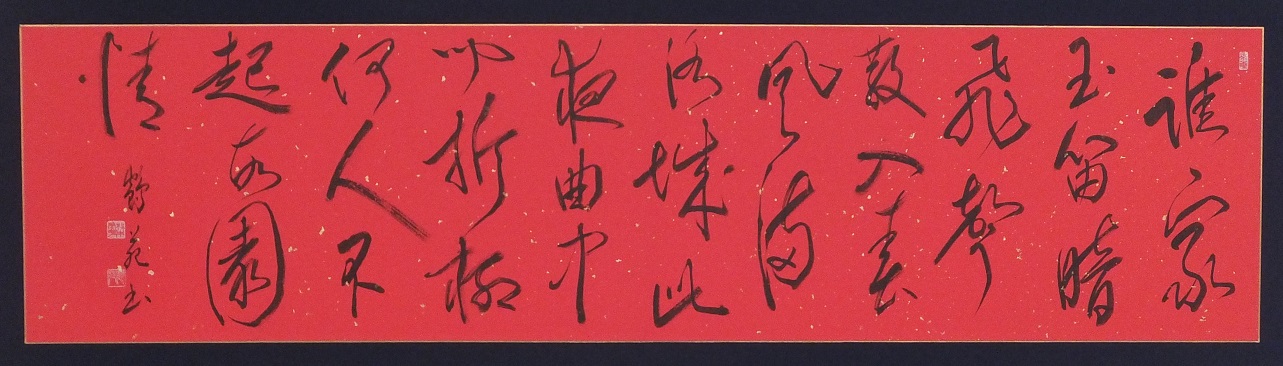 誰家
玉笛暗
飛聲
散入春
風滿
洛城此
夜曲中
聞折柳
何人不
起故園
情
鶴苑書